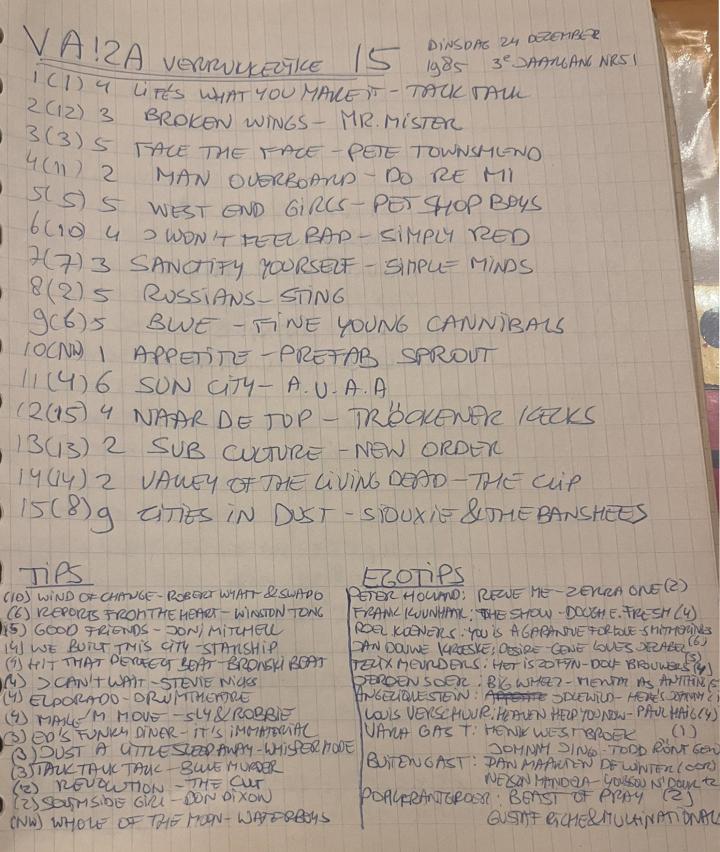 VARA VERRUKKELIJKE 15
DINSDAG 24 DEZEMBER
1985 3e JAARGANG NR51
1(1) 4 LIFE'S WHAT YOU MAKE IT - TALK TALK
2(12) 3 BROKEN WINGS - MR. MISTER
3(3) 5 FACE THE FACE - PETE TOWNSHEND
4(11) 2 MAN OVERBOARD - DO RE MI
5(5) 5 WEST END GIRLS - PET SHOP BOYS
6(10) 4 I WON'T FEEL BAD - SIMPLY RED
7(7) 3 SANCTIFY YOURSELF - SIMPLE MINDS
8(2) 5 RUSSIANS - STING
9(6) 5 BLUE - FINE YOUNG CANNIBALS
10(NW) 1 APPETITE - PREFAB SPROUT
11(4) 6 SUN CITY - A.U.A.A
12(15) 4 NAAR DE TOP - TRÖCKENER KECKS
13(13) 2 SUB CULTURE - NEW ORDER
14(14) 2 VALLEY OF THE LIVING DEAD - THE CLIP
15(8) 9 CITIES IN DUST - SIOUXIE & THE BANSHEES
TIPS
(10) WIND OF CHANGE - ROBERT WYATT & SWAPO
(6) REPORTS FROM THE HEART - WINSTON TONG
(5) GOOD FRIENDS - JONI MITCHELL
(4) WE BUILT THIS CITY - STARSHIP
HIT THAT PERFECT BEAT - BRONSKI BEAT
(4) I CAN'T WAIT - STEVIE NICKS
(4) ELDORADO - DRUMTHEATRE
(4) MAKE 'M MOVE - SLY & ROBBIE
(3) ED'S FUNKY DINER - IT'S IMMATERIAL
(3) JUST A LITTLE STEP AWAY - WHISPER MODE
(3) TALK TALK TALK - BLUE MURDER
(2) REVOLUTION - THE CULT
(2) SOUTHSIDE GIRL - DON DIXON
(NW) WHOLE OF THE MOON - WATERBOYS
EGOTIPS
PETER HOLLAND: RESCUE ME - ZERRA ONE (2)
FRANK: THE SHOW - DOUGH E. FRESH (4)
ROEL KOENERS: YOU IS A GARANTUE FOR LOVE - SMITHEREENS
JAN DOUWE KROESKE: DESIRE - GENE LOVES JEZABEL (6)
FELIX MEURDERS: HET IS ZO FIJN - DOLF BROUWERS (4)
JEROEN SOER: BIG WHEEL - MENTAL AS ANYTHING
ANGELIQUE STEIN: IDLEWILD - HERE'S JOHNNY
LOUIS VERSCHUUR: HEAVEN HELP YOU NOW - PAUL HAIG (4)
VARA GAST: HENK WESTBROEK (1)
JOHNNY JINGO - TODD RUNDGREN
BUITENGAST: JAN MAARTEN DE WINTER
NELSON MANDELA - YOUSSOU N'DOUR
POPKRANTGROEP: BEAST OF PRAY (2)
GUSTAF RICHE & MULTINATIONALS